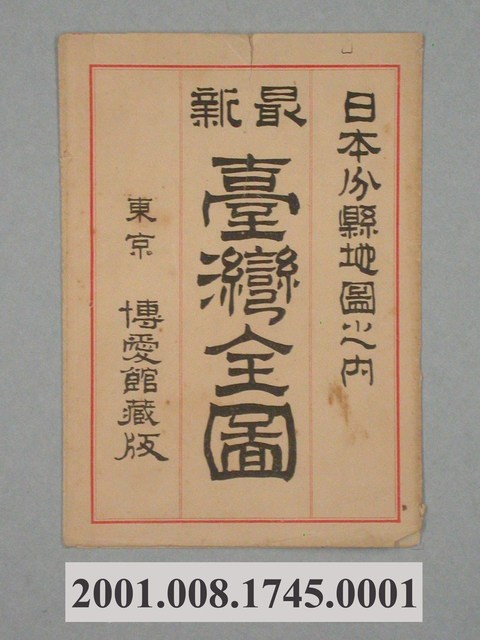 日本分縣地圖之内
最新
臺灣全圖
東京 博愛館藏版
2001.008.1745.0001